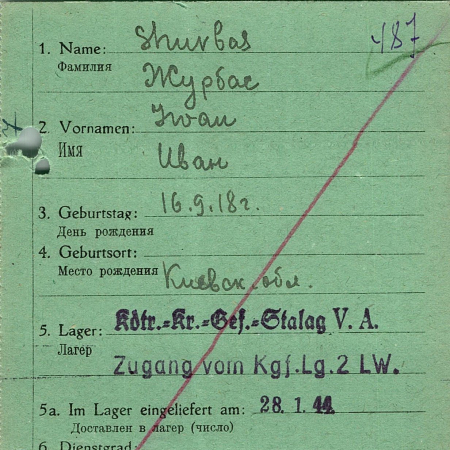 487
1. Name: Shurbas
Фамилия Журбас
2. Vornamen: Iwan
Имя Иван
3. Geburtstag: 16.9.18г.
День рождения
4. Geburtsort:
Место рождения Киевск. обл.
5. Lager: Kdtr.-Kr.-Gef.-Stalag V. A.
Лагерь
Zugang vom Kgf.Lg.2 LW.
5a. Im Lager eingeliefert am: 28. 1. 44
Доставлен в лагерь (число)
6. Dienstgrad: